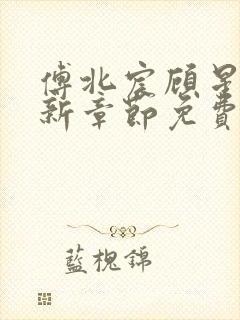 傅北宸顾星
新章節免費
藍槐錦